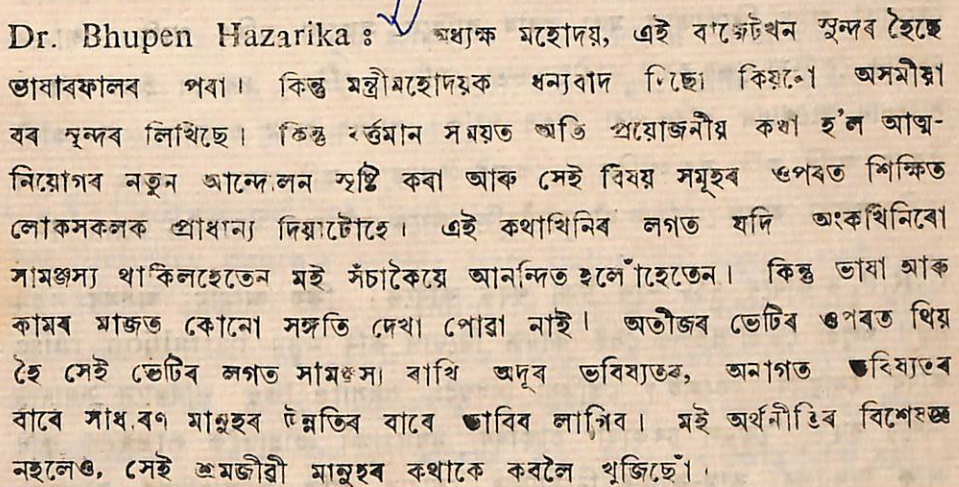 Dr. Bhupen Hazarika : অধ্যক্ষ মহোদয়, এই বাজেটখন সুন্দৰ হৈছে
ভাষাৰফালৰ পৰা । কিন্তু মন্ত্ৰীমহোদয়ক ধন্যবাদ দিছো কিয়নো অসমীয়া
বৰ সুন্দৰ লিখিছে । কিন্তু বৰ্ত্তমান সময়ত অতি প্ৰয়োজনীয় কথা হ'ল আত্ম-
নিয়োগৰ নতুন আন্দোলন সৃষ্টি কৰা আৰু সেই বিষয় সমূহৰ ওপৰত শিক্ষিত
লোকসকলক প্ৰাধান্য দিয়াটোহে । এই কথাখিনিৰ লগত যদি অংকখিনিৰো
সামঞ্জস্য থাকিলহেতেন মই সঁচাকৈয়ে আনন্দিত হলোঁহেতেন । কিন্তু ভাষা আৰু
কামৰ মাজত কোনো সঙ্গতি দেখা পোৱা নাই । অতীজৰ ভেটিৰ ওপৰত থিয়
হৈ সেই ভেটিৰ লগত সামঞ্জস্য ৰাখি অদূৰ ভবিষ্যতৰ, অনাগত ভবিষ্যতৰ
বাবে সাধাৰণ মানুহৰ উন্নতিৰ বাবে ভাবিব লাগিব । মই অৰ্থনীতিৰ বিশেষজ্ঞ
নহলেও, সেই শ্ৰমজীৱী মানুহৰ কথাকে কবলৈ খুজিছোঁ ।